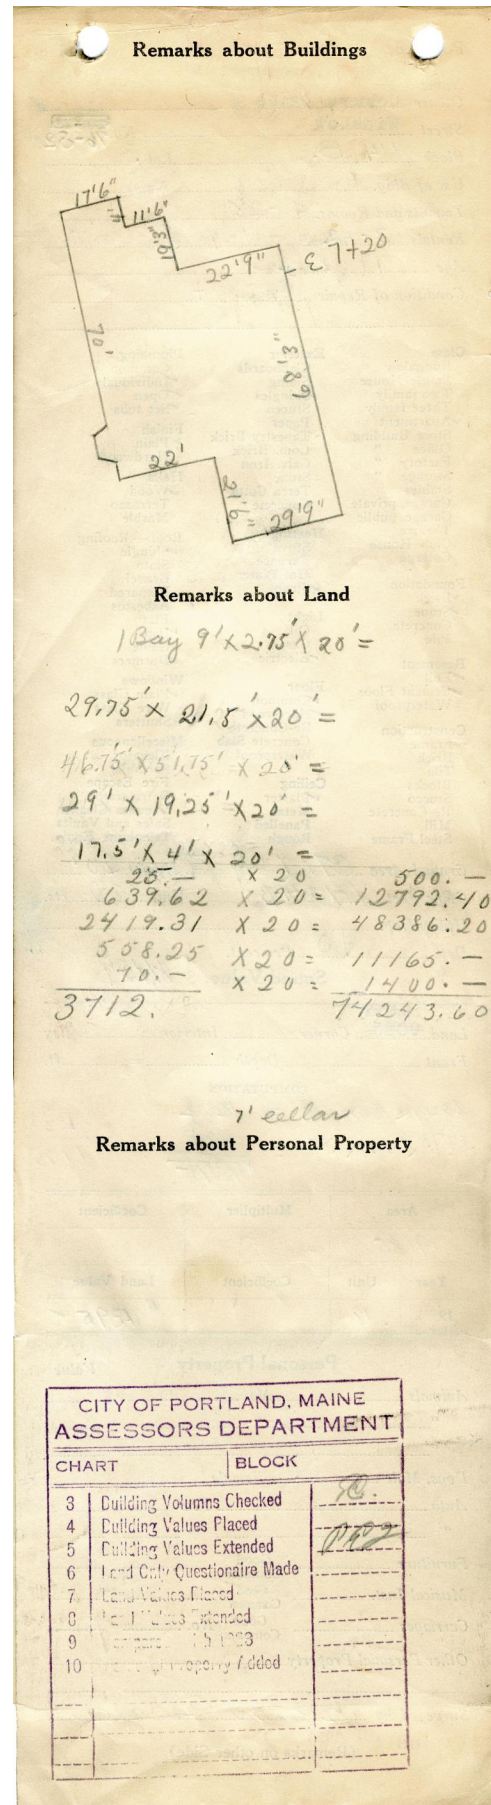 Remarks about Buildings
17'6"
4'
11'6"
19'3"
22'9"
70'
68'3"
22'
21'6"
29'9"
Remarks about Land
1 Bay 9' X 2.75' X 20' =
29.75' X 21.5' X 20' =
46.75' X 51.75' X 20' =
29' X 19.25' X 20' =
17.5' X 4' X 20' =
25.— X 20 500.—
639.62 X 20 = 12792.40
2419.31 X 20 = 48386.20
558.25 X 20 = 11165.—
70.— X 20 = 1400.—
3712. 74243.60
7' cellar
Remarks about Personal Property
CITY OF PORTLAND, MAINE
ASSESSORS DEPARTMENT
CHART BLOCK
3 Building Volumns Checked
4 Building Values Placed
5 Building Values Extended
6 Land Only Questionaire Made
7 Land Values Placed
8 Land Values Extended
9
10 Property Added